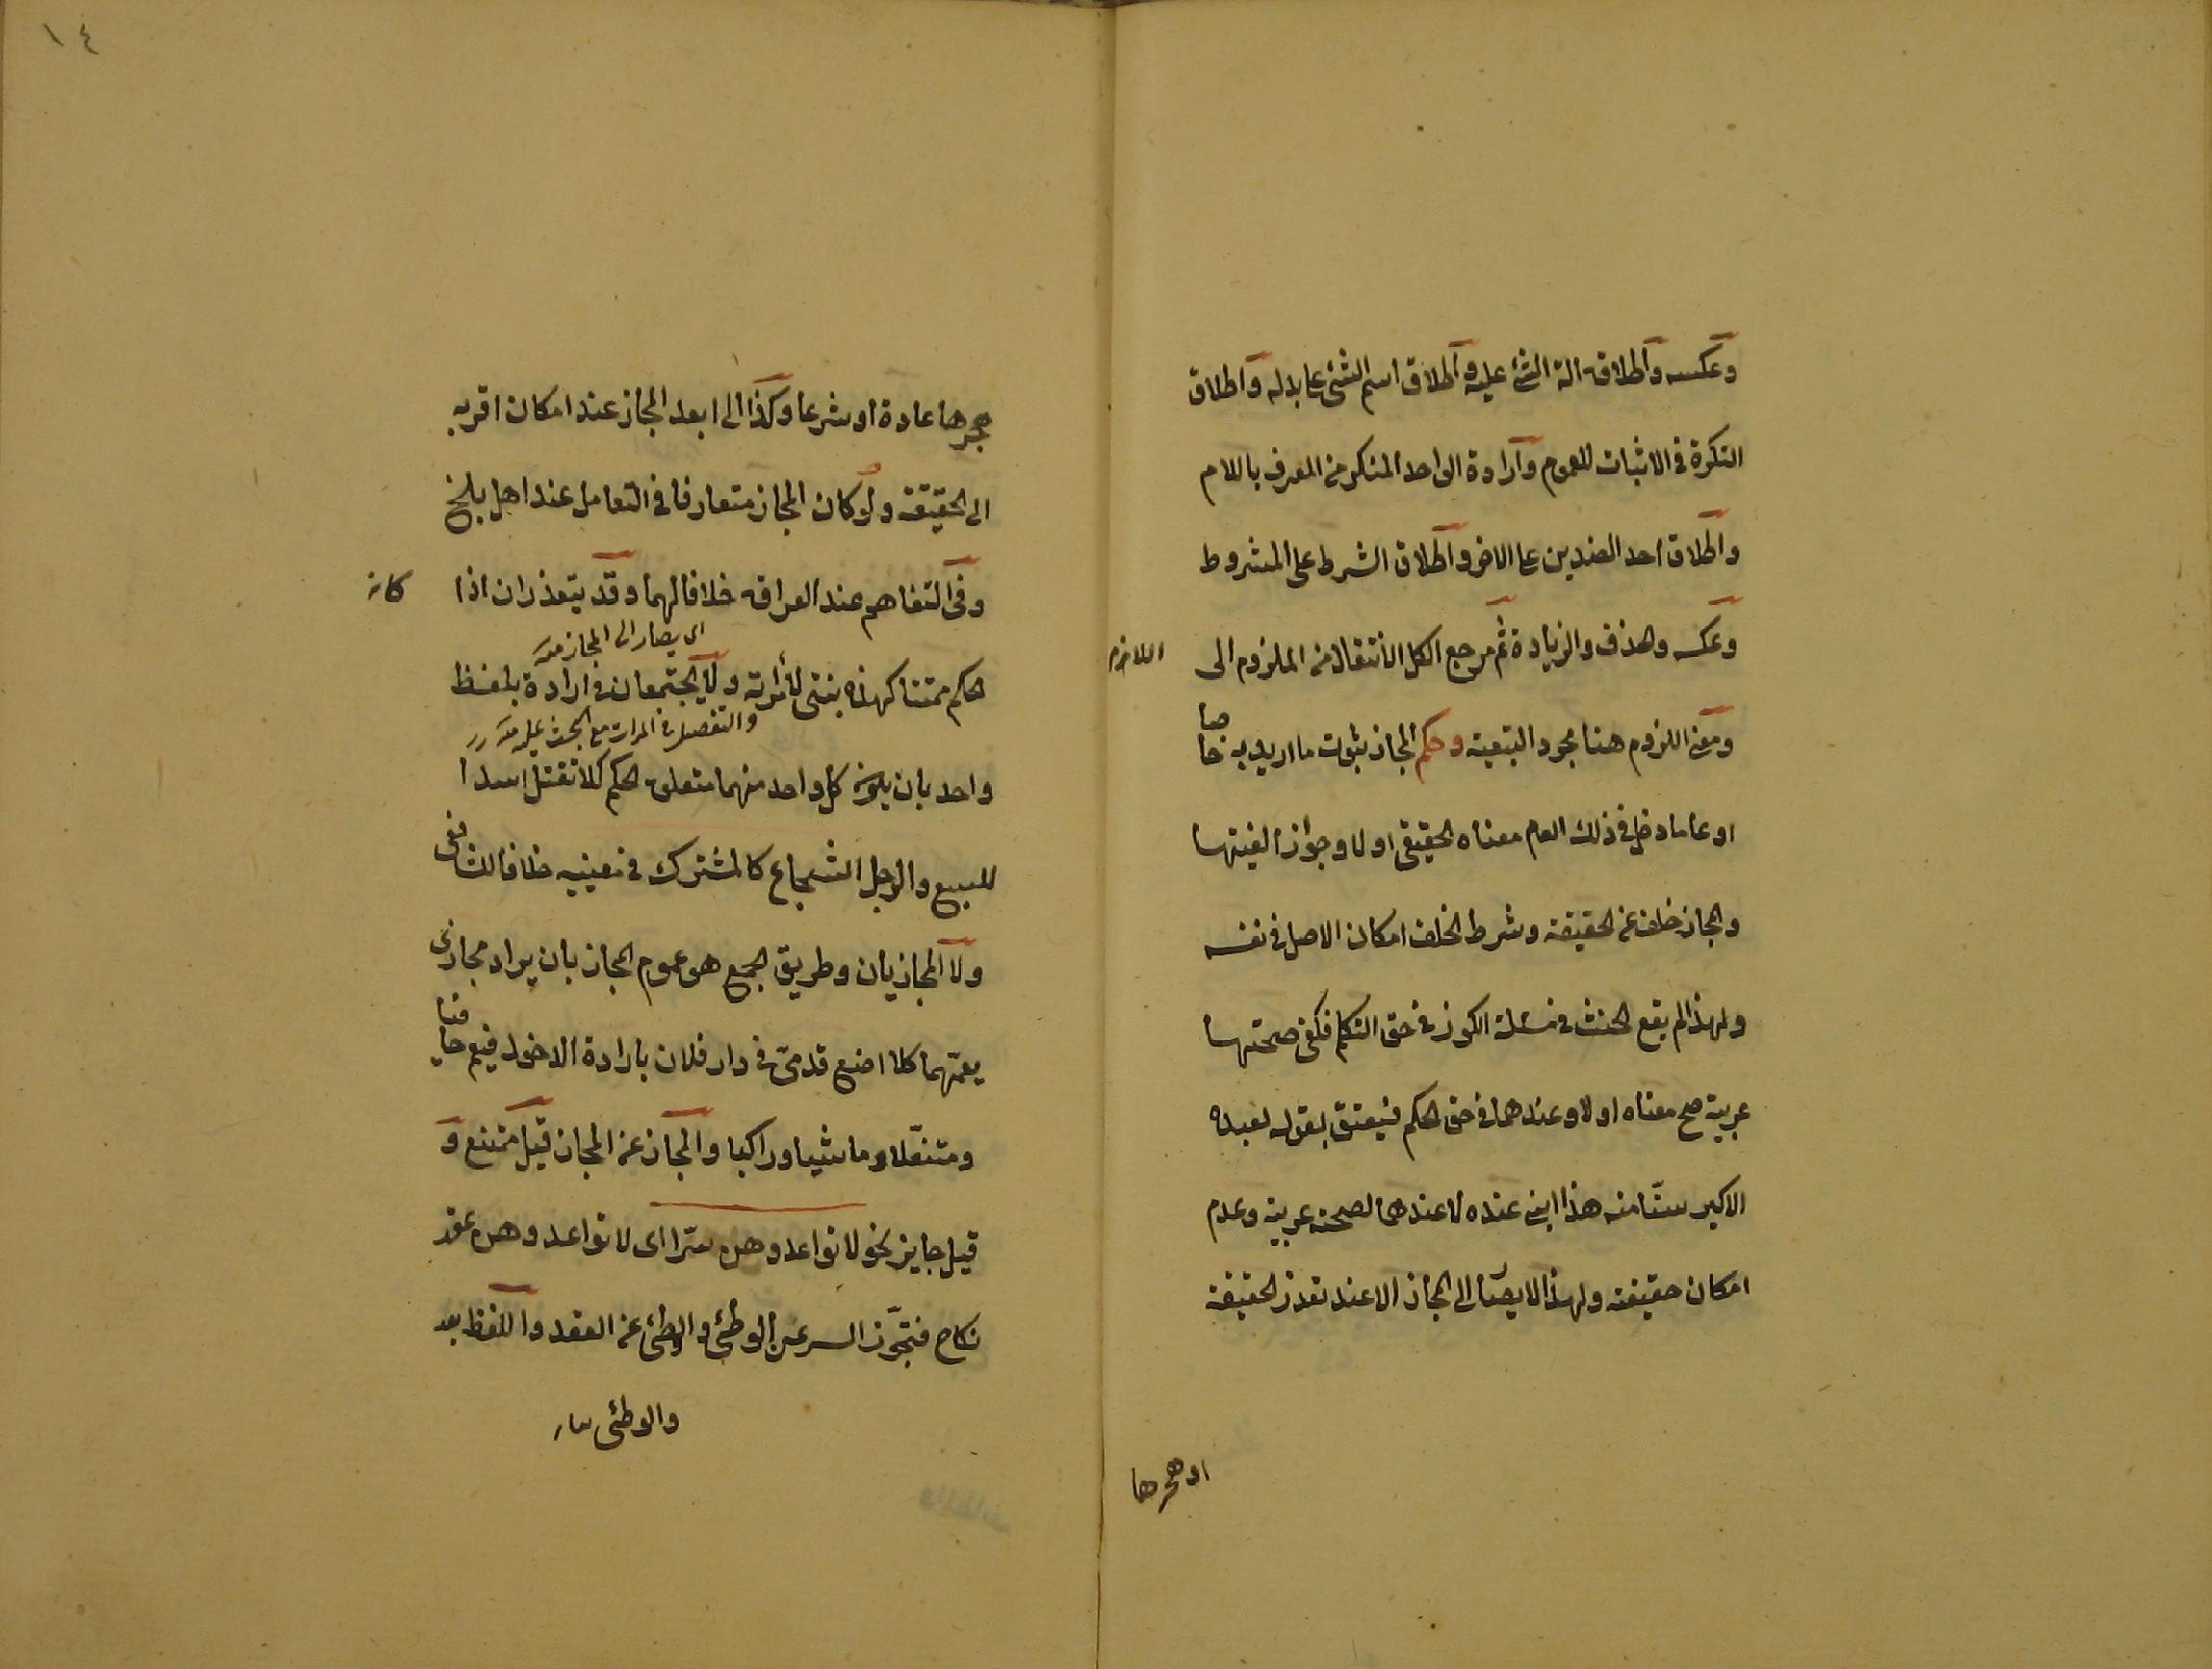 وعكسه واطلاق الة الشئ عليه واطلاق اسم الشئ على بدله واطلاق
النكرة في الاثبات للعموم وارادة الواحد المنكر من المعرف باللام
واطلاق احد الضدين على الاخر واطلاق الشرط على المشروط
وعكسه والحذف والزيادة ثم مرجع الكل الانتقال من الملزوم الى اللازم
ومعنى اللزوم هنا مجرد التبعية وحكم المجاز ثبوت ما اريد به خاصا
او عاما دخل في ذلك العام معناه الحقيقي او لا وجواز
والمجاز خلف عن الحقيقة وشرط الخلف امكان الاصل في نفسه
ولهذا لم يقع الحنث في مسئلة الكوز في حق التكلم فكفى صحتها
عربية صح معناه او لا وعندهما في حق الحكم فيعتق بقوله لعبده
الاكبر سنا منه هذا ابني عنده لا عندهما لصحته عربية وعدم
امكان حقيقته ولهذا لا يصار الى المجاز الا عند تعذر الحقيقة
او هجرها
١٤
هجرها عادة او شرعا وكذا الى ابعد المجاز عند امكان اقربه
الى الحقيقة ولو كان المجاز متعارفا في التعامل عند اهل بلخ
وفي التفاهم عند العراق خلافا لهما وقد يتعذران اذا كان
اى يصار الى المجاز منه
الحكم ممتنعا كهذه بنتي لامرأته ولا يجتمعان في ارادة بلفظ
والتفصيل في المرات مع البحث عليه منه
واحد بان يكون كل واحد منهما متعلق الحكم كلا تقتل اسدا
للسبع والرجل الشجاع كالمشترك في معنييه خلافا للشافعى
ولا المجازيان وطريق الجمع هو عموم المجاز بان يراد مجازى
يعمهما كلا اضع قدمى في دار فلان بارادة الدخول فيعم حافيا
ومتنعلا وماشيا وراكبا والمجاز عن المجاز قيل ممتنع و
قيل جايز نحو لا تواعدوهن سرا اى لا تواعدوهن عقد
نكاح فتجوز السر عن الوطئ والوطئ عن العقد واللفظ بعد
والوطئ